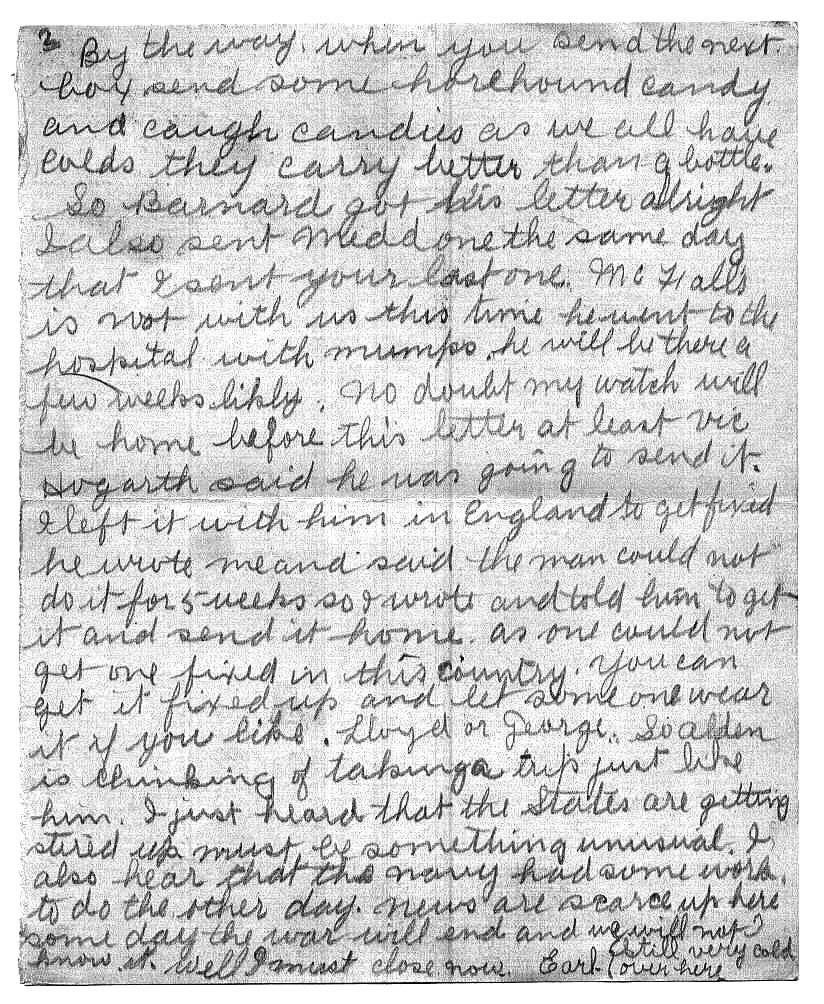 3 By the way, when you send the next
box send some horehound candy
and caugh candies as we all have
colds they carry better than a bottle.
So Barnard got his letter alright
I also sent Medd one the same day
that I sent your last one. Mc Falls
is not with us this time he went to the
hospital with mumps, he will be there a
few weeks likly. No doubt my watch will
be home before this letter at least Vic
Hogarth said he was going to send it.
I left it with him in England to get fixed
he wrote me and said the man could not
do it for 5 weeks so I wrote and told him to get
it and send it home. as one could not
get one fixed in this country. You can
get it fixed up and let some one wear
it if you like. Lloyd or George. So Alden
is thinking of taking a trip just like
him. I just heard that the States are getting
stired up must be something unusual. I
also hear that the navy had some work
to do the other day. news are scarce up here
some day the war will end and we will not
know it. Well I must close now. Earl.
(Still very cold
over here